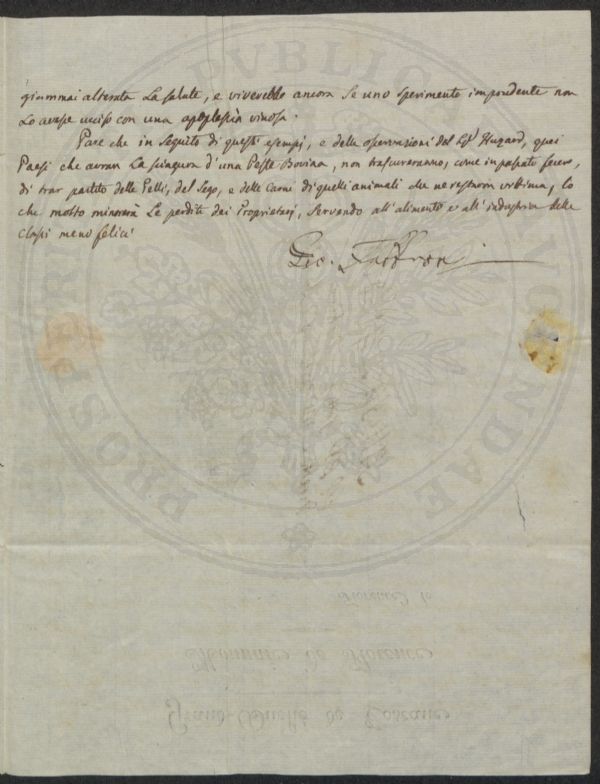 giammai alterata la salute, e viverebbe ancora se uno sperimento imprudente non
lo avesse ucciso con una apoplessia vinosa.
Pare che in seguito di questi esempj, e delle osservazioni del Sigr. Huzard, quei
Paesi che avran la sciagura d'una Peste Bovina, non trascureranno, come in passato fecero,
di trar partito delle Pelli, del Sego, e delle Carni di quelli animali che ne restaron vittima, lo
che molto minorerà le perdite dei Proprietarj, servendo all'alimento e all'industria delle
classi meno felici
Gio.
PROSPERITATI PUBLICAE AUGENDAE
Florence le
Monnaie de Florence
Grand-Duché de Toscane